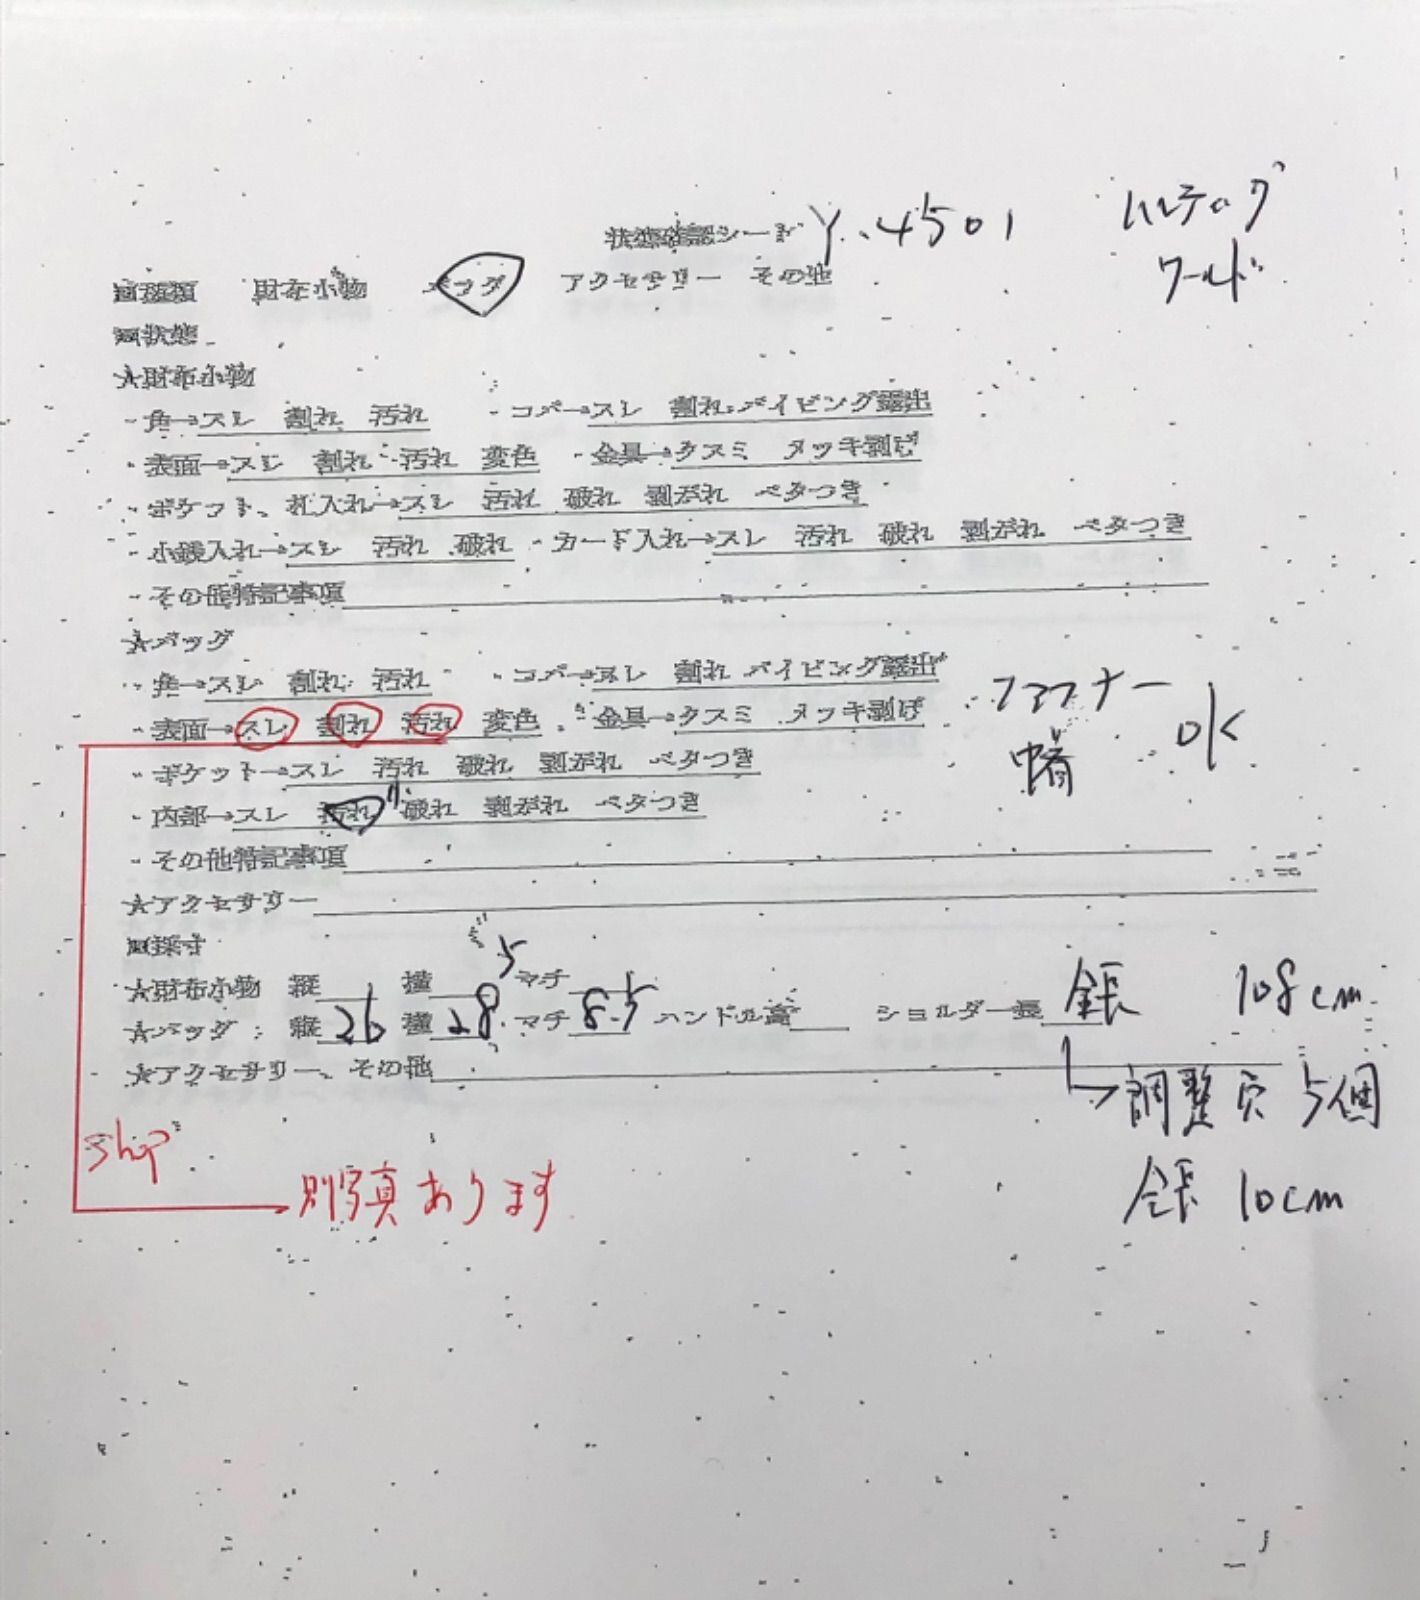 状態確認シート Y.4501
ハンティング
ワールド
■種類 財布小物 バッグ アクセサリー その他
■状態
★財布小物
・角→スレ 割れ 汚れ ・コバ→スレ 割れ パイピング露出
・表面→スレ 割れ 汚れ 変色 ・金具→クスミ メッキ剥げ
・ポケット、札入れ→スレ 汚れ 破れ 剥がれ ベタつき
・小銭入れ→スレ 汚れ 破れ ・カード入れ→スレ 汚れ 破れ 剥がれ ベタつき
・その他特記事項
★バッグ
・角→スレ 割れ 汚れ ・コバ→スレ 割れ パイピング露出
・表面→スレ 割れ 汚れ 変色 ・金具→クスミ メッキ剥げ
ファスナー
OK
・ポケット→スレ 汚れ 破れ 剥がれ ベタつき
・内部→スレ 汚れ 破れ 剥がれ ベタつき
・その他特記事項
★アクセサリー
■採寸
★財布小物 縦 横 マチ
★バッグ 縦 26 横 28.5 マチ 8.5 ハンドル高 ショルダー長 全長 108cm
調整穴 5個
全長 10cm
★アクセサリー、その他
shop
別写真あります